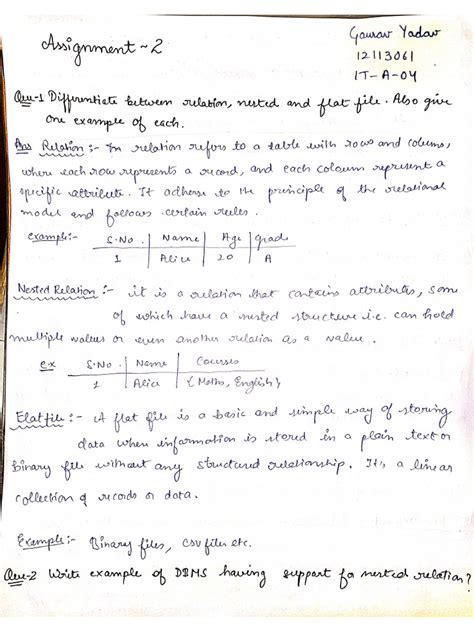 Assignment ~ 2
Gaurav Yadav
12113061
IT-A-04
Que-1 Differentiate between relation, nested and flat file. Also give
one example of each.
Ans Relation :- In relation refers to a table with rows and colums,
where each row represents a record, and each coloumn represent a
specific attribute. It adhere to the principle of the relational
model and follows certain rules.
Example:- S.No Name Age grade
1 Alice 20 A
Nested Relation :- it is a relation that contains attributes, some
of which have a nested structure i.e. can hold
multiple values or even another relation as a value.
ex S.No Name Courses
1 Alice {Maths, English}
Flat file :- A flat file is a basic and simple way of storing
data when information is stored in a plain text or
Binary file without any structured relationship. It's a linear
collection of records or data.
Example:- Binary files, csv files etc.
Que-2 Write example of DBMS having support for nested relation?